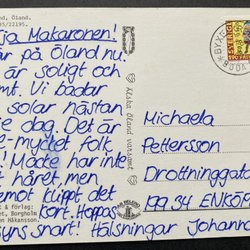 and, Öland.
95/22195.
Makaronen!
är på Öland nu.
är soligt och
mt. Vi badar
solar nästan
e dag. Det är
mycket folk
! Måste har inte
t håret men
emot klippt det
kort. Hoppas
syns snart! Hälsningar Johanna
t & förlag:
et, Borgholm
n Håkansson.
Klick Öland varsamt
Michaela
Pettersson
Drottninggata
199 34 ENKÖP